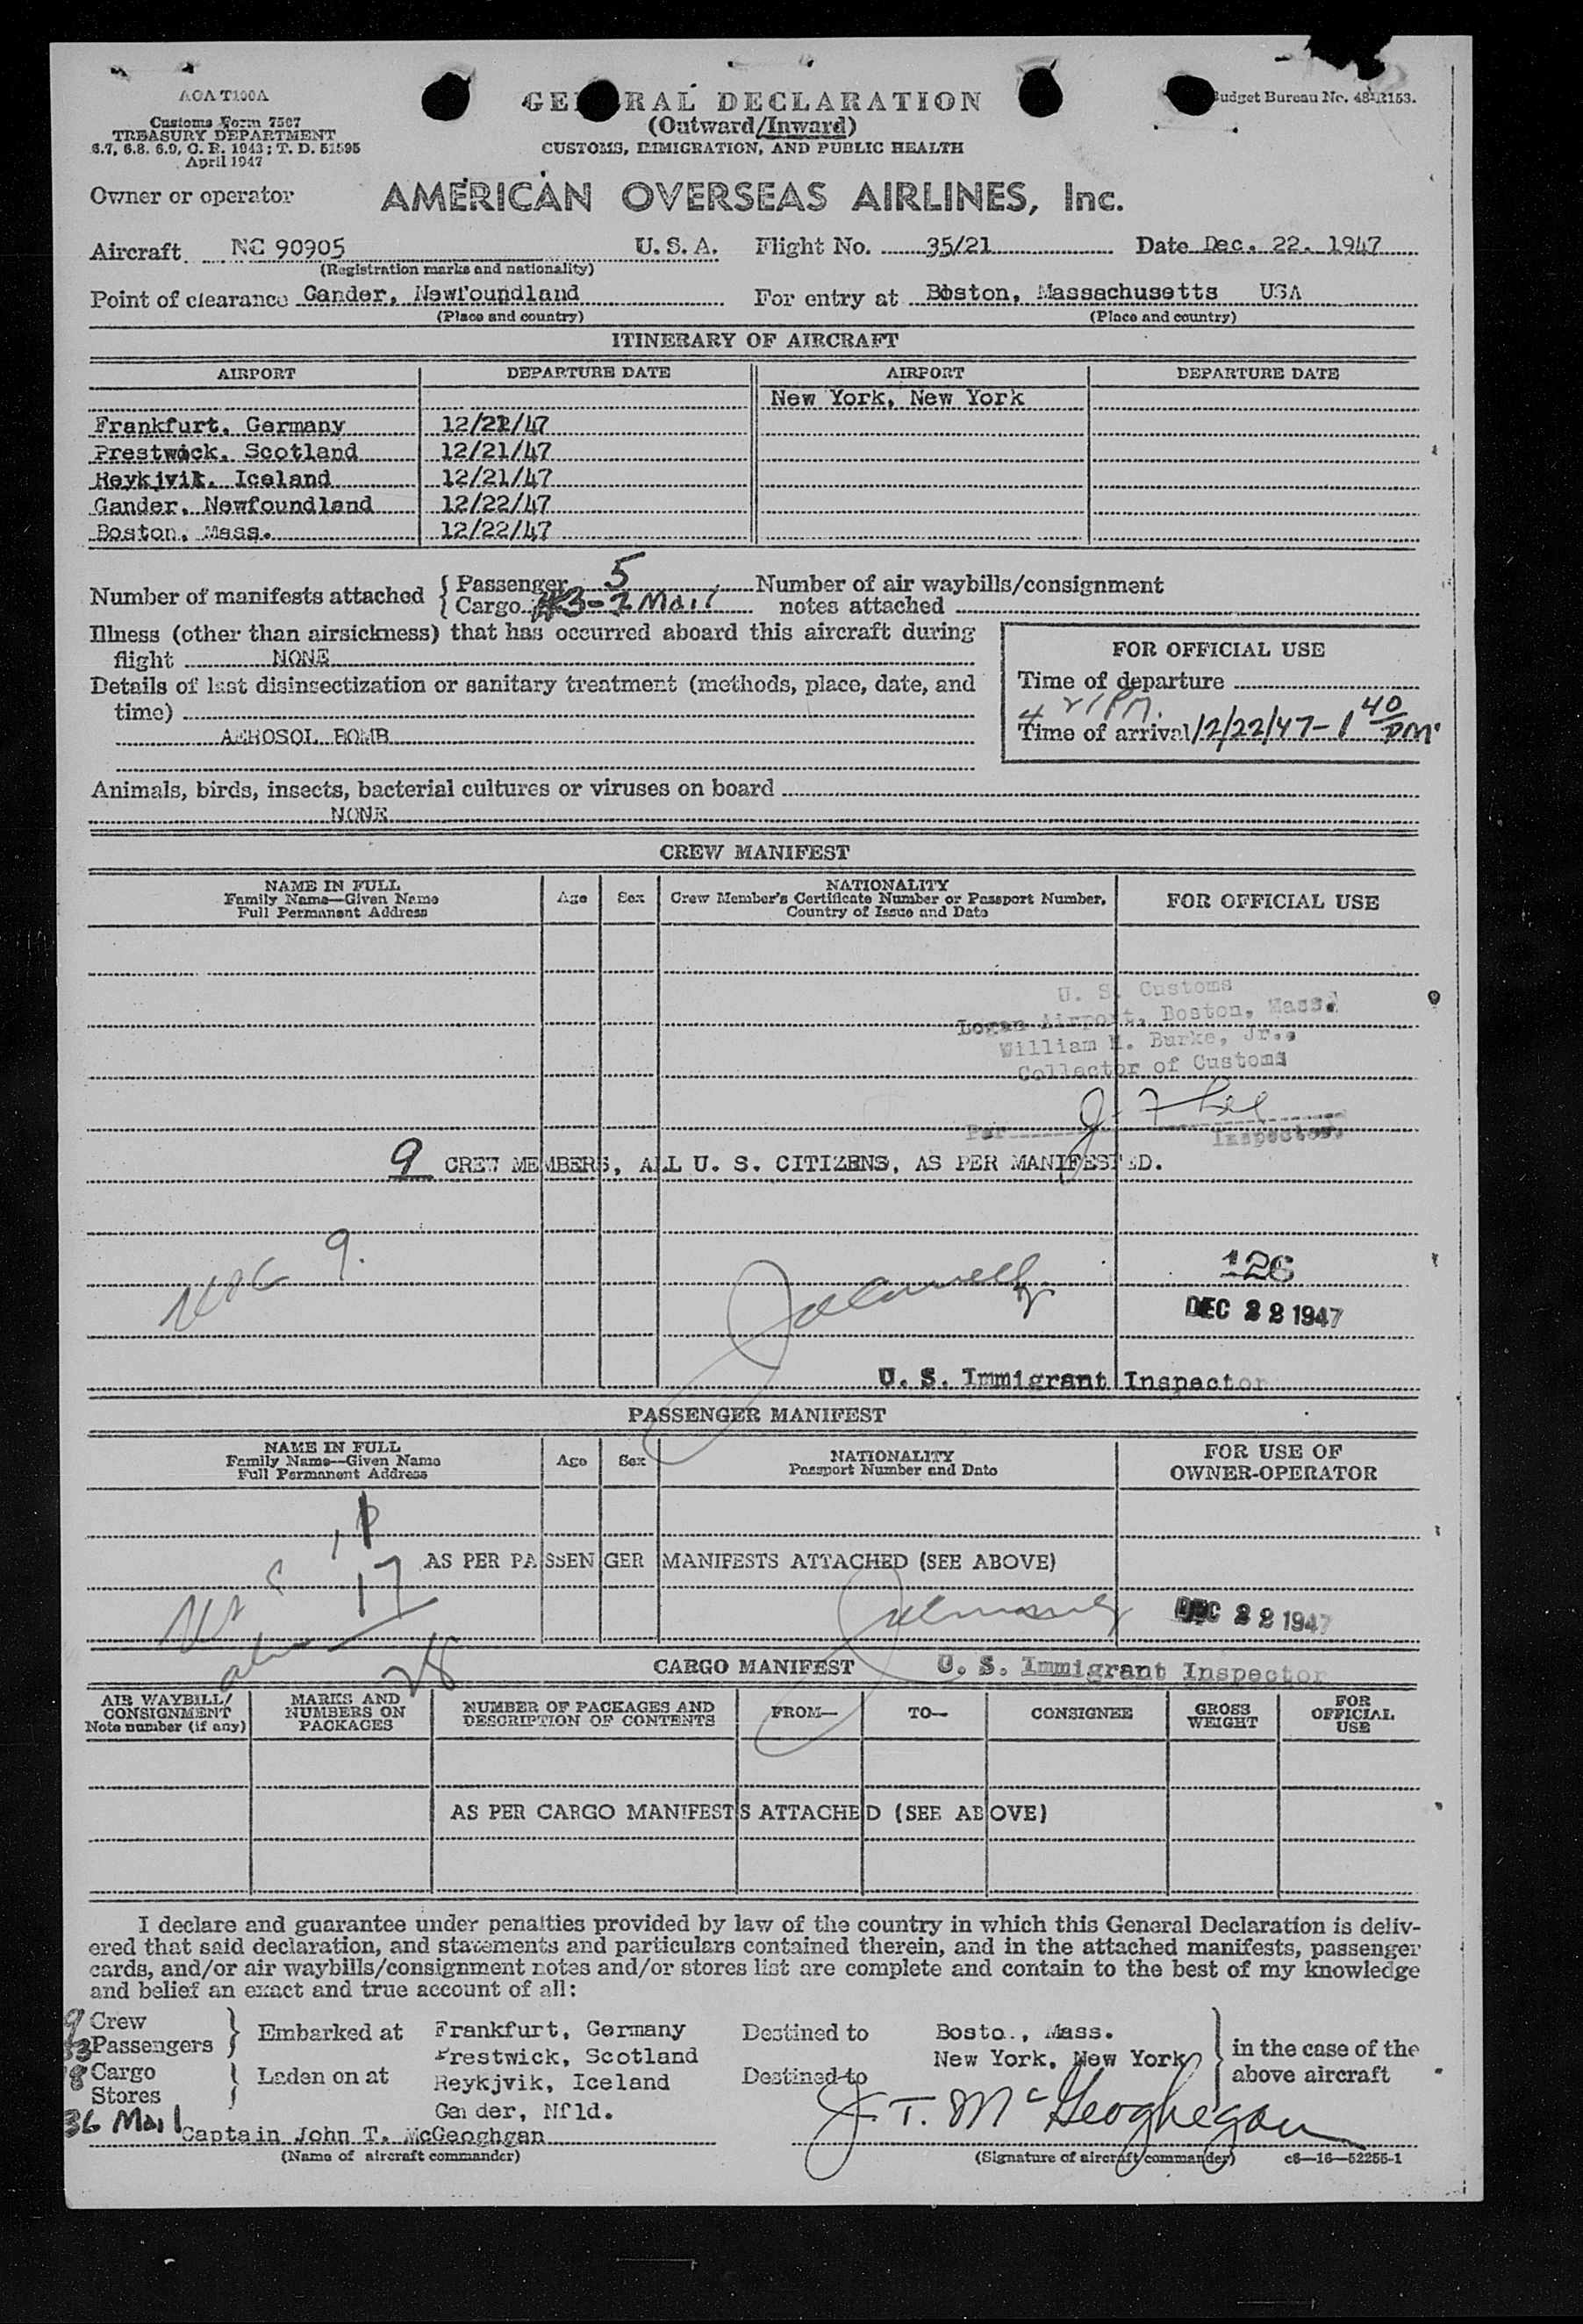 AOA T100A
Customs Form 7507
TREASURY DEPARTMENT
6.7, 6.8, 6.9, C. R. 1943; T. D. 51595
April 1947
GENERAL DECLARATION
(Outward/Inward)
CUSTOMS, IMMIGRATION, AND PUBLIC HEALTH
Budget Bureau No. 48-R153.
Owner or operator AMERICAN OVERSEAS AIRLINES, Inc.
Aircraft NC 90905 U. S. A. Flight No. 35/21 Date Dec. 22. 1947
(Registration marks and nationality)
Point of clearance Gander, Newfoundland For entry at Boston, Massachusetts USA
(Place and country) (Place and country)
ITINERARY OF AIRCRAFT
AIRPORT DEPARTURE DATE AIRPORT DEPARTURE DATE
New York, New York
Frankfurt, Germany 12/21/47
Prestwick, Scotland 12/21/47
Reykjvik, Iceland 12/21/47
Gander, Newfoundland 12/22/47
Boston, Mass. 12/22/47
Number of manifests attached { Passenger 5 Number of air waybills/consignment
Cargo 3-2 Mail notes attached
Illness (other than airsickness) that has occurred aboard this aircraft during
flight NONE
Details of last disinsectization or sanitary treatment (methods, place, date, and
time)
AEROSOL BOMB
FOR OFFICIAL USE
Time of departure
4 21 PM.
Time of arrival 12/22/47 - 1 40 PM
Animals, birds, insects, bacterial cultures or viruses on board
NONE
CREW MANIFEST
NAME IN FULL
Family Name—Given Name
Full Permanent Address
Age Sex
NATIONALITY
Crew Member's Certificate Number or Passport Number,
Country of Issue and Date
FOR OFFICIAL USE
U. S. Customs
Logan Airport, Boston, Mass.
William H. Burke, Jr.,
Collector of Customs
Per
Inspector.
9 CREW MEMBERS, ALL U. S. CITIZENS, AS PER MANIFESTED.
9.
126
DEC 22 1947
U. S. Immigrant Inspector
PASSENGER MANIFEST
NAME IN FULL
Family Name—Given Name
Full Permanent Address
Age Sex
NATIONALITY
Passport Number and Date
FOR USE OF
OWNER-OPERATOR
AS PER PASSENGER MANIFESTS ATTACHED (SEE ABOVE)
17
DEC 22 1947
28
CARGO MANIFEST
U. S. Immigrant Inspector
AIR WAYBILL/
CONSIGNMENT
Note number (if any)
MARKS AND
NUMBERS ON
PACKAGES
NUMBER OF PACKAGES AND
DESCRIPTION OF CONTENTS
FROM— TO— CONSIGNEE
GROSS
WEIGHT
FOR
OFFICIAL
USE
AS PER CARGO MANIFESTS ATTACHED (SEE ABOVE)
I declare and guarantee under penalties provided by law of the country in which this General Declaration is deliv-
ered that said declaration, and statements and particulars contained therein, and in the attached manifests, passenger
cards, and/or air waybills/consignment notes and/or stores list are complete and contain to the best of my knowledge
and belief an exact and true account of all:
9 Crew
33 Passengers } Embarked at Frankfurt, Germany Destined to Boston, Mass.
Prestwick, Scotland New York, New York } in the case of the
8 Cargo
Stores } Laden on at Reykjvik, Iceland Destined to above aircraft
Gander, Nfld.
36 Mail
Captain John T. McGeoghgan J. T. McGeoghegan
(Name of aircraft commander) (Signature of aircraft commander) c6—16—52255-1